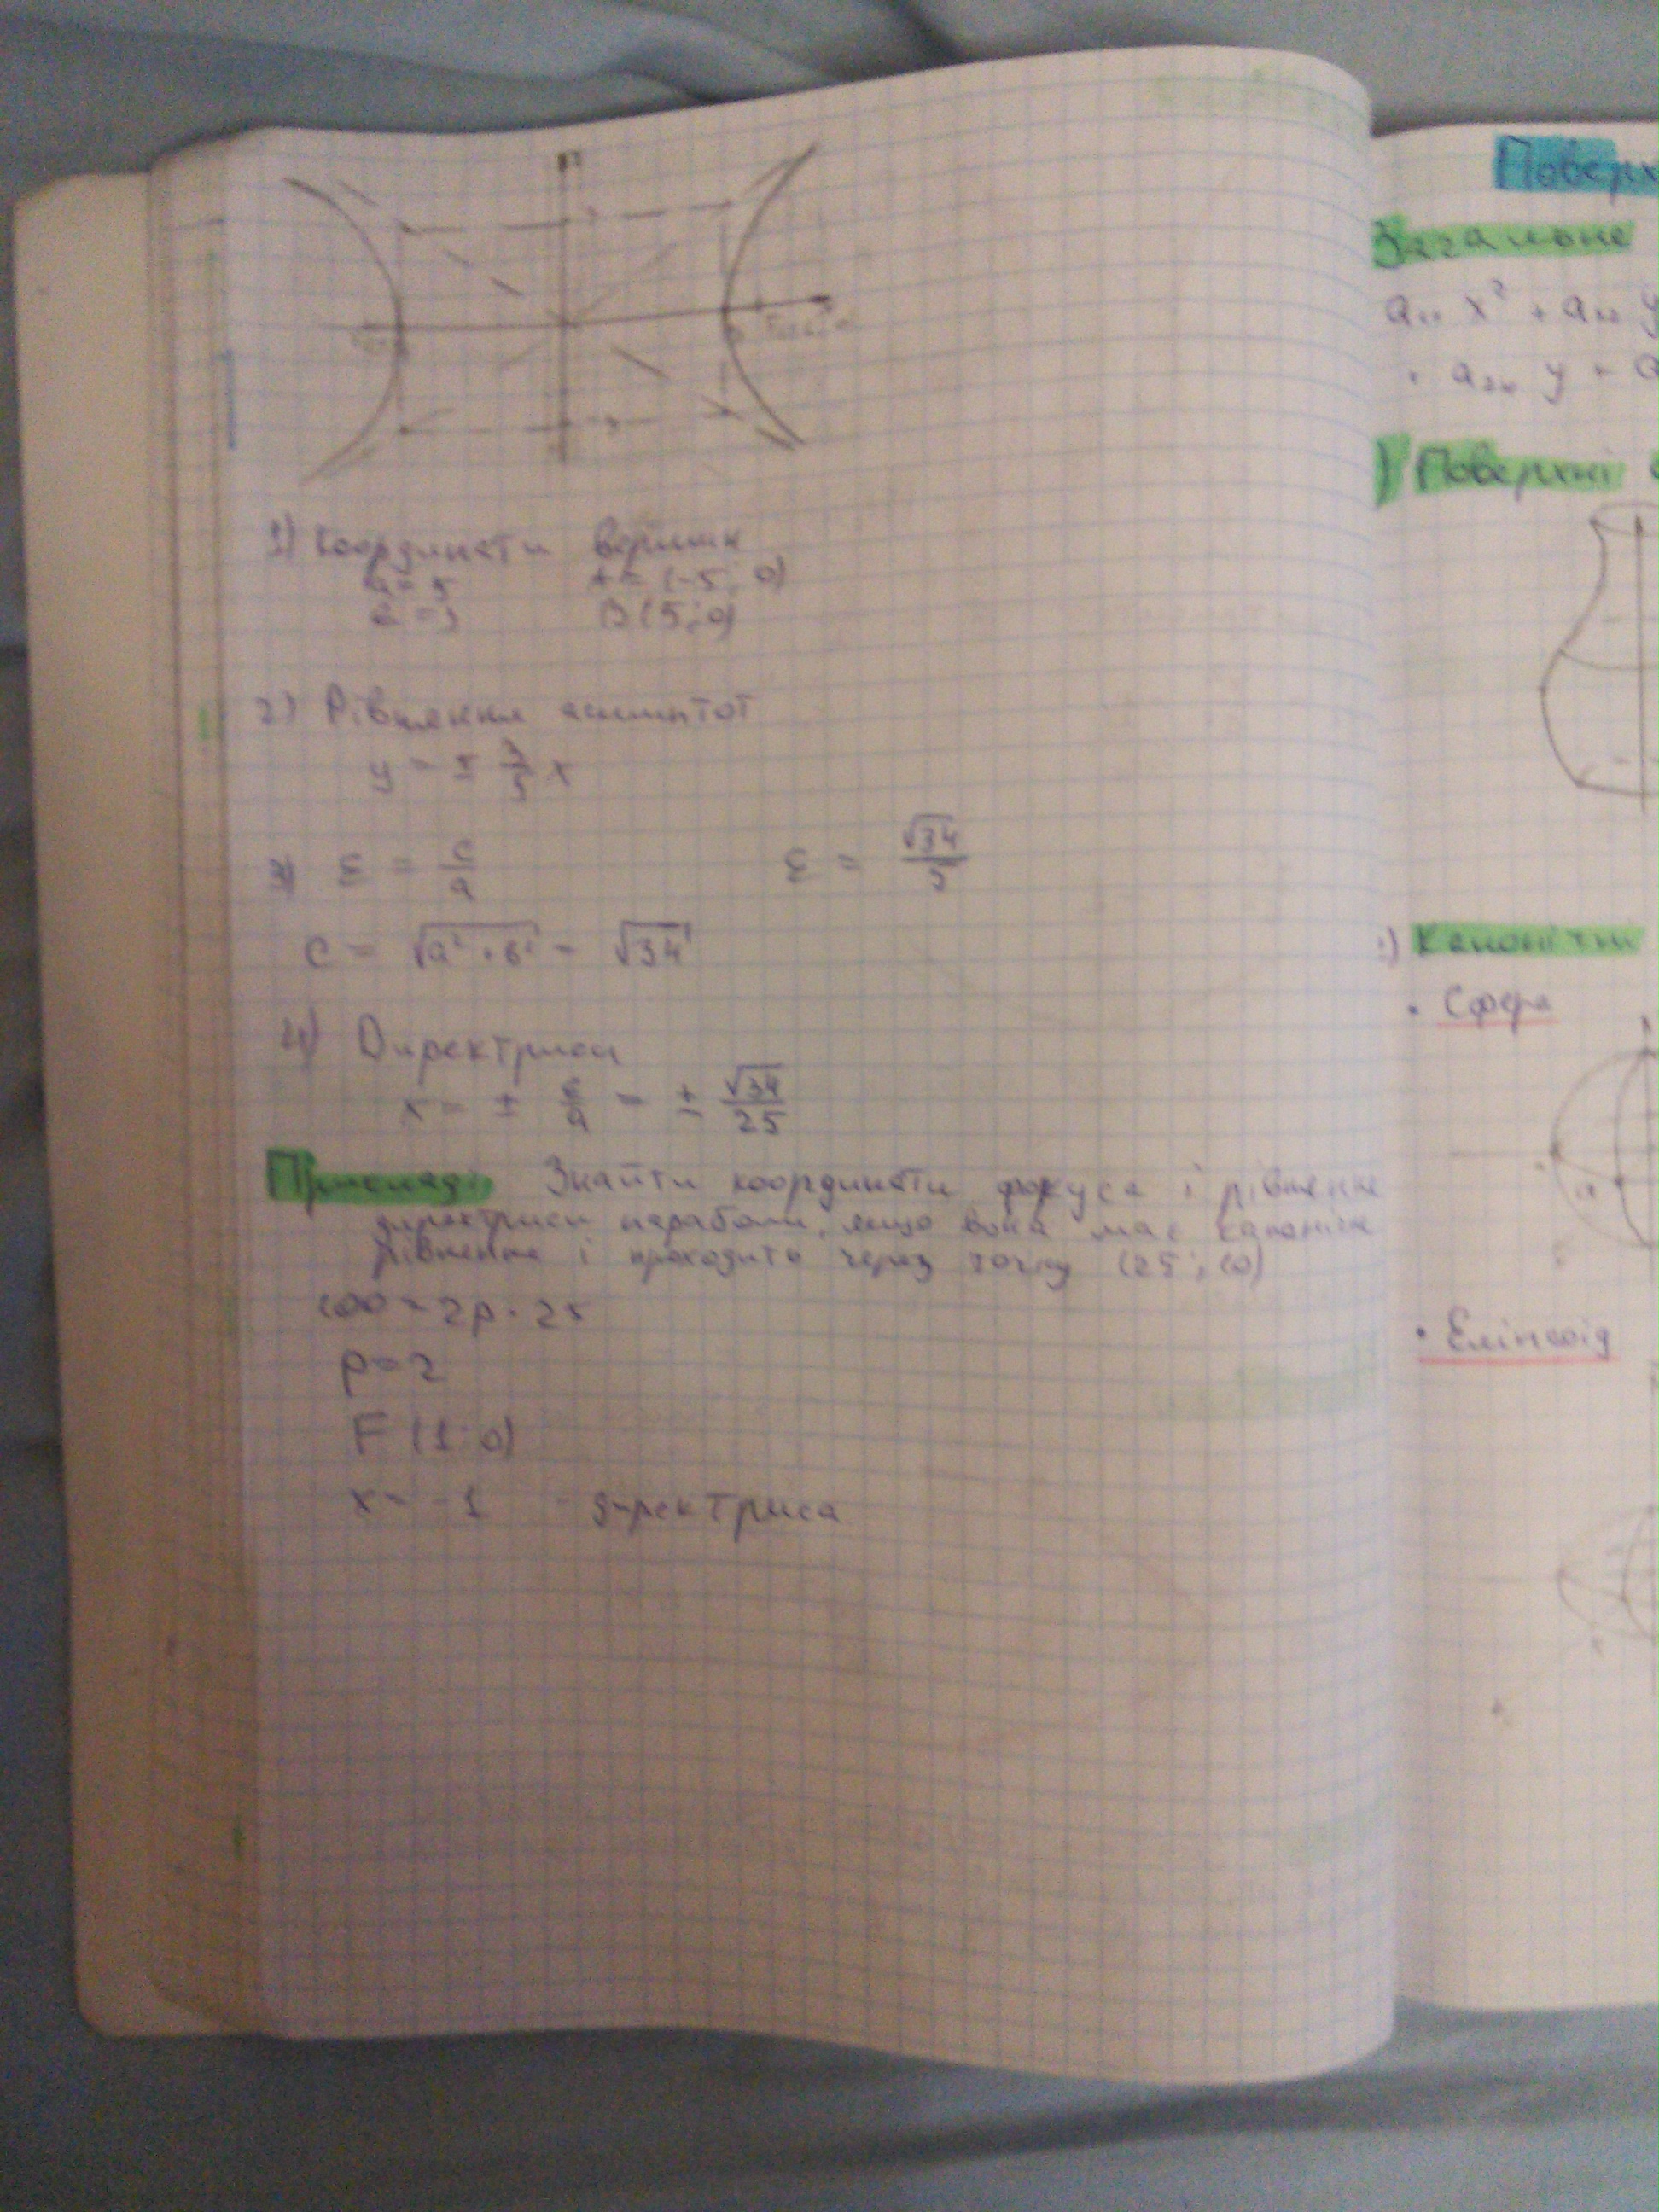 1) Координати вершин
a = 5 A = (-5; 0)
в = 3 B (5; 0)
2) Рівняння асимптот
y = ± 3/5 x
3) ε = c/a ε = √34/5
c = √a² + в² = √34
4) Директриси
x = ± ε/a = ± √34/25
Приклад: Знайти координати фокуса і рівняння
директриси параболи, якщо вона має канонічне
рівняння і проходить через точку (25; 10)
100 = 2p · 25
p = 2
F (1; 0)
x = -1 - директриса
Загальне
a₁₁ x² + a₂₂ y
+ a₂₄ y + a
) Поверхні
• Сфера
a
• Еліпсоїд